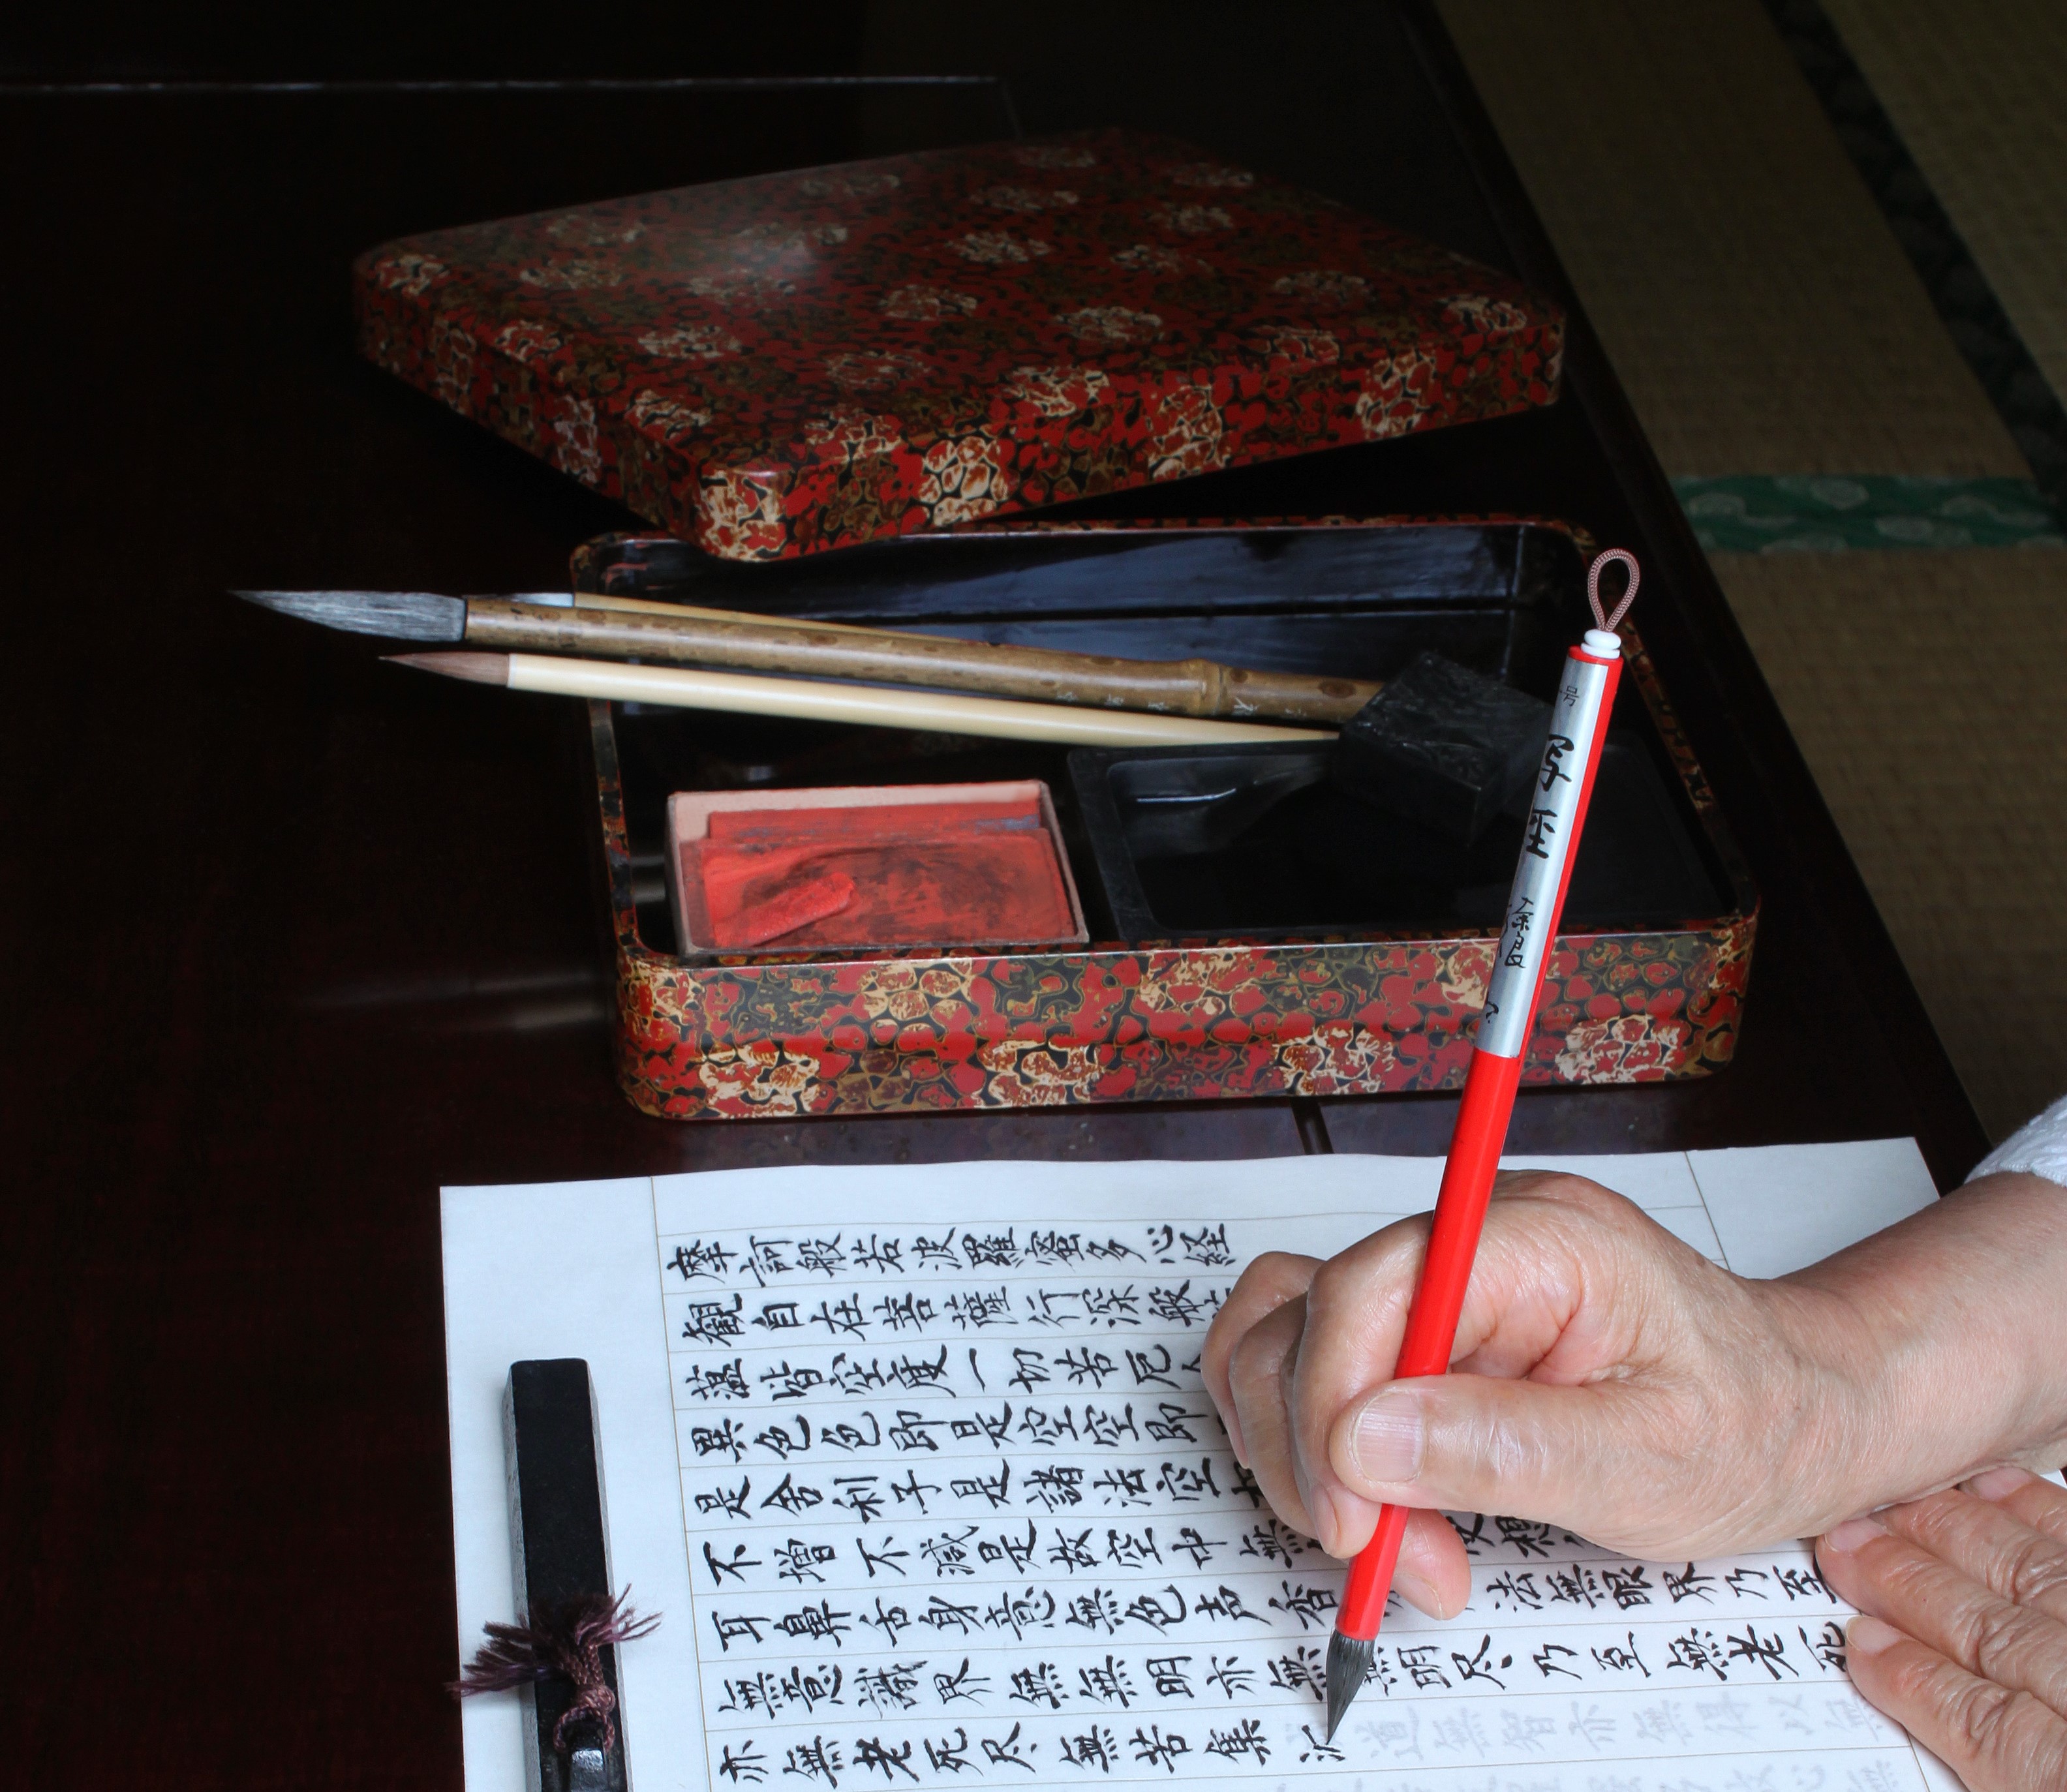 摩訶般若波羅蜜多心経
観自在菩薩行深般
蘊皆空度一切苦厄
異色色即是空空即
是舎利子是諸法空
不増不減是故空中無
耳鼻舌身意無色声香 法無眼界乃至
無意識界無無明亦無無明尽乃至無老死
亦無老死尽無苦集 道無智亦無得以無
号
写